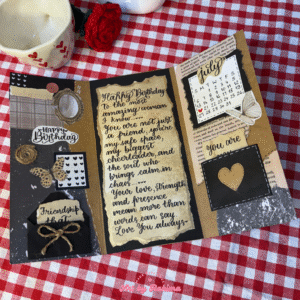 Happy
Birthday
Friendship
that
Happy Birthday
To the most
amazing woman
I know
You are not just
a friend, you're
my safe place,
my biggest
cheerleader, and
the soul who
brings calm in
chaos
Your love, strength,
and presence
mean more than
words can say
Love You always-
July
You are